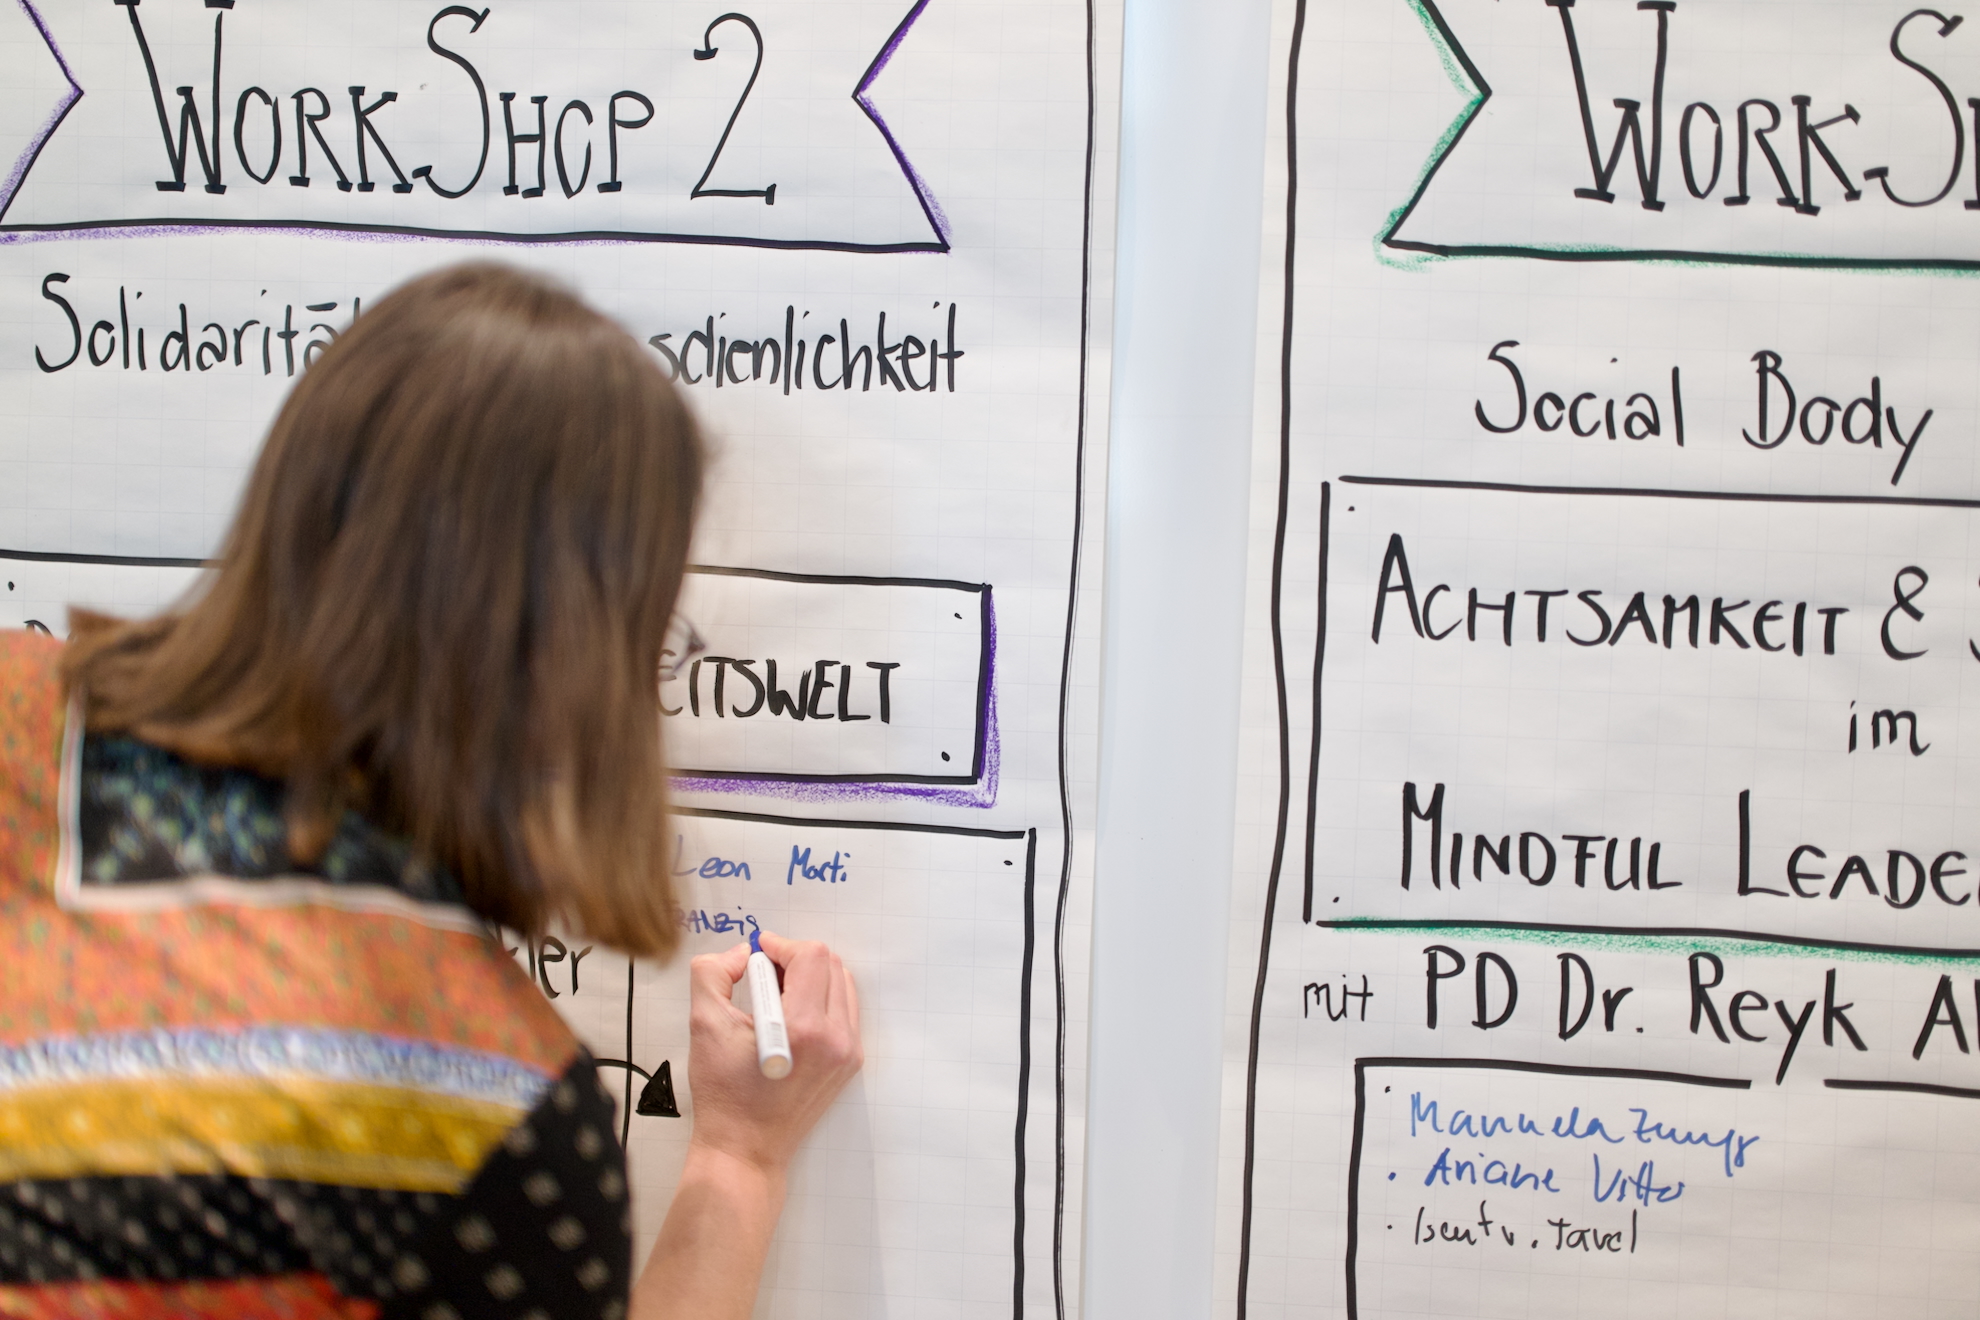 WORKSHOP 2
Solidaritä sdienlichkeit
EITSWELT
Leon Marti
RANZis
ler
WORKS
Social Body
ACHTSAMKEIT &
im
MINDFUL LEADE
mit PD Dr. Reyk Al
Manuela
Ariane
v. Tavel